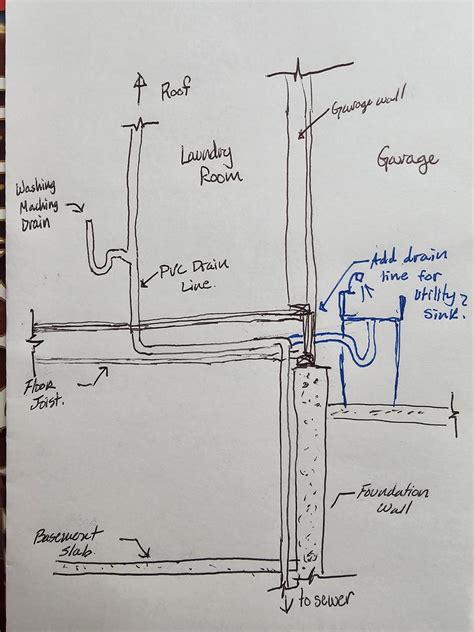 Roof
Garage wall
Laundry
Room
Garage
Washing
Maching
Drain
PVC Drain
Line.
Add drain
line for
utility
sink.
Floor
Joist.
Foundation
Wall
Basement
Slab.
to sewer